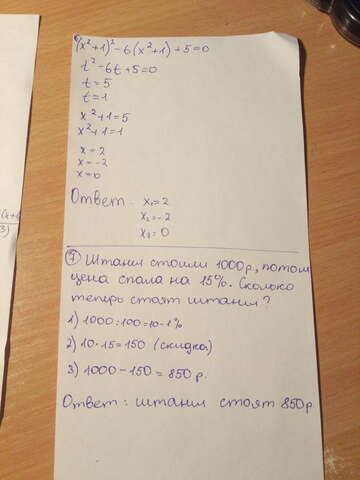 6) (x²+1)²-6(x²+1)+5=0
t²-6t+5=0
t=5
t=1
x²+1=5
x²+1=1
x=2
x=-2
x=0
Ответ. x₁=2
x₂=-2
x₃=0
7) Штаны стоили 1000р, потом
цена спала на 15%. Сколько
теперь стоят штаны?
1) 1000:100=10-1%
2) 10·15=150 (скидка)
3) 1000-150=850 р.
Ответ: штаны стоят 850р